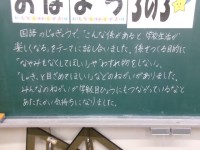 おはよう 303
国語のじゅぎょうで、こんな係があると学校生活が
楽しくなる、をテーマに話し合いました。係をつくる目的に
「なやみをなくしてほしい」や「わすれ物をなくしたい」
「しっかりと目ざめてほしい」などのねがいがありました。
みんなのねがいが学級目ひょうにもつながっているなと
あたたかい気持ちになりました。